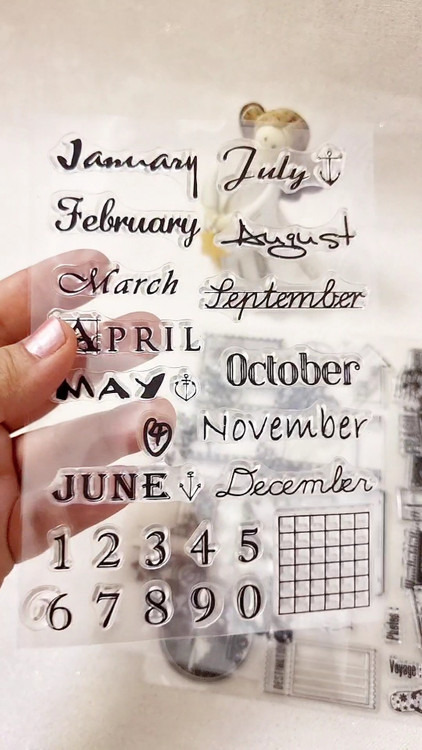 January
February
March
APRIL
MAY
JUNE
July
August
September
October
November
December
1 2 3 4 5
6 7 8 9 0
Voyage :